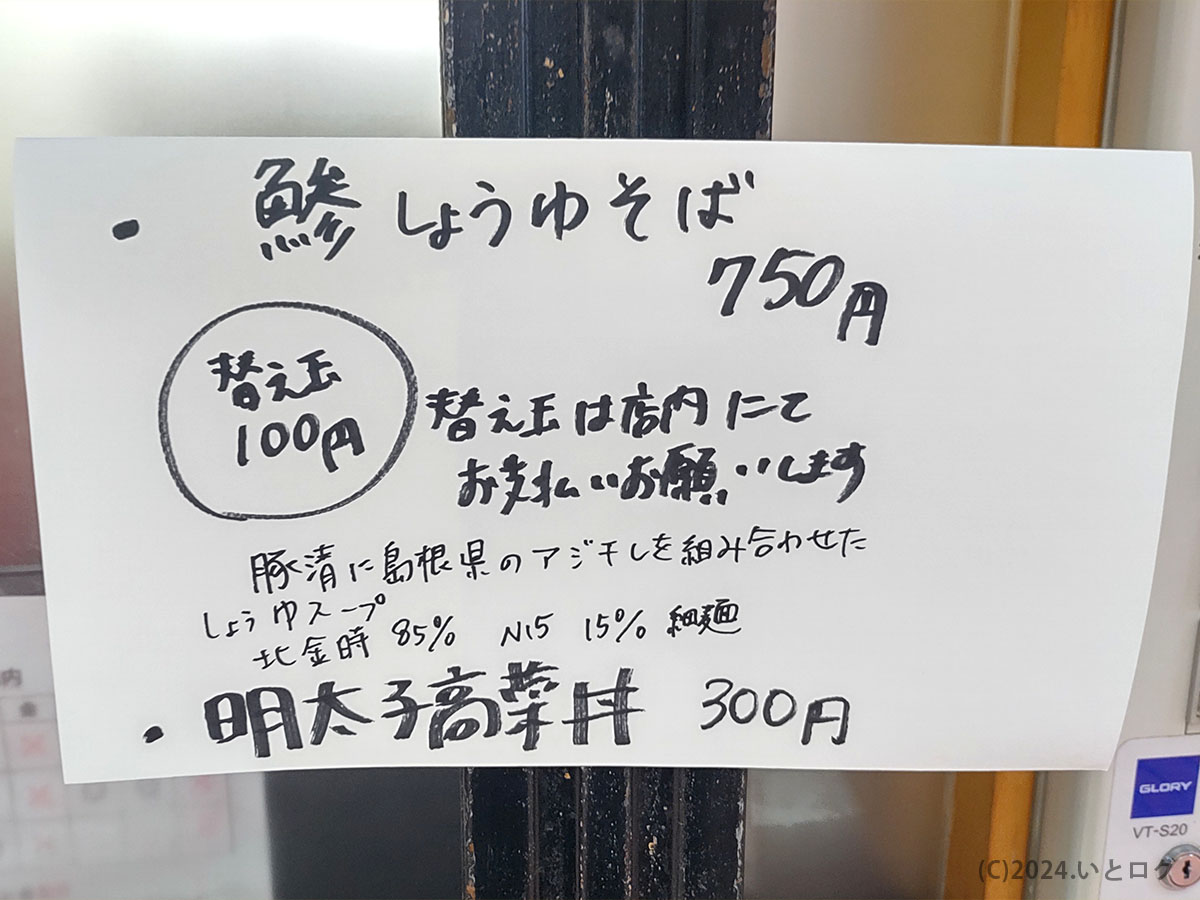 ・ 鯵しょうゆそば
750円
替え玉
100円
替え玉は店内にて
お支払いお願いします
豚清に島根県のアジ干しを組み合わせた
しょうゆスープ
北金時 85% N15 15% 細麺
・明太子高菜丼 300円
内
金
GLORY
VT-S20
(C)2024.いとログ